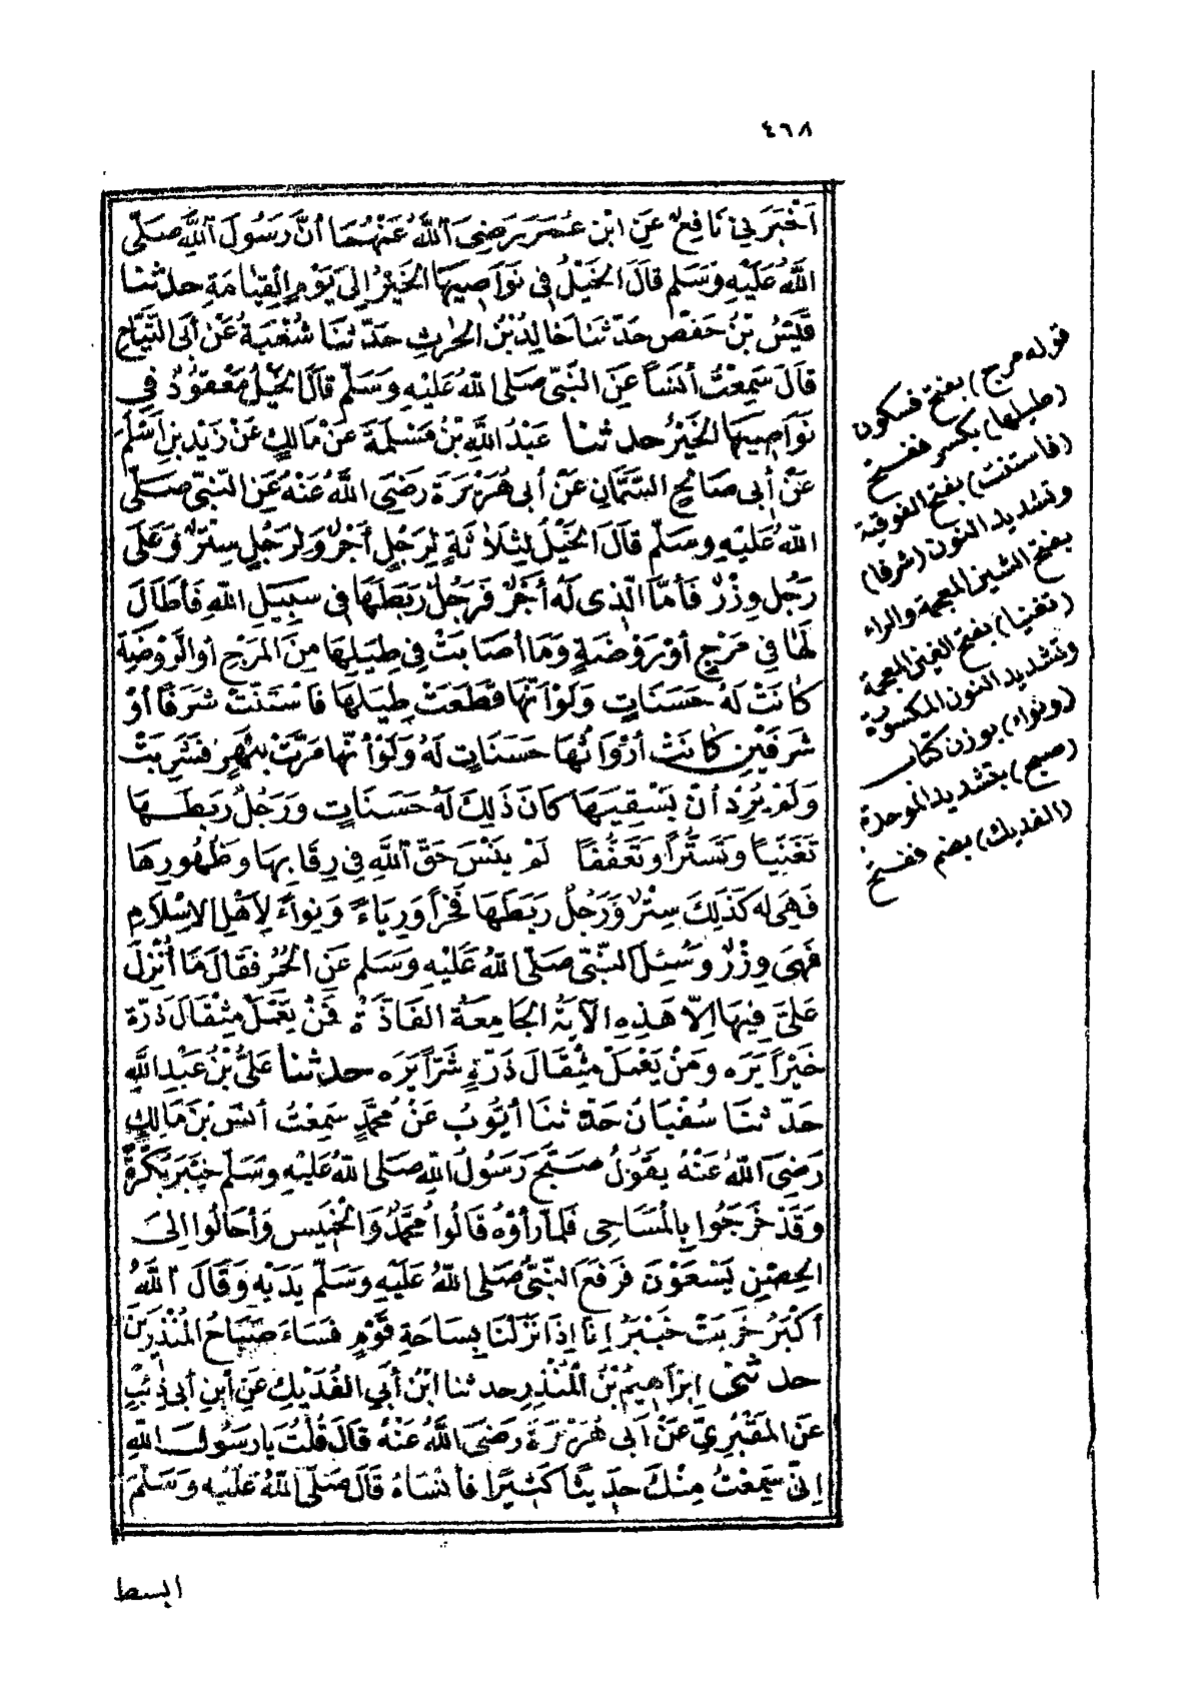 ٤٦٨
اَخْبَرَنِي نَافِعٌ عَنِ ابْنِ عُمَرَ رَضِيَ اللَّهُ عَنْهُمَا أَنَّ رَسُولَ اللَّهِ صَلَّى
اللَّهُ عَلَيْهِ وَسَلَّمَ قَالَ الْخَيْلُ فِي نَوَاصِيهَا الْخَيْرُ إِلَى يَوْمِ الْقِيَامَةِ حدثنا
قَيْسُ بْنُ حَفْصٍ حَدَّثَنَا خَالِدُ بْنُ الْحَرِثِ حَدَّثَنَا شُعْبَةُ عَنْ أَبِي التَّيَّاحِ
قَالَ سَمِعْتُ أَنَسًا عَنِ النَّبِيِّ صَلَّى اللَّهُ عَلَيْهِ وَسَلَّمَ قَالَ الْخَيْلُ مَعْقُودٌ فِي
نَوَاصِيهَا الْخَيْرُ حدثنا عَبْدُ اللَّهِ بْنُ مَسْلَمَةَ عَنْ مَالِكٍ عَنْ زَيْدِ بْنِ أَسْلَمَ
عَنْ أَبِي صَالِحٍ السَّمَّانِ عَنْ أَبِي هُرَيْرَةَ رَضِيَ اللَّهُ عَنْهُ عَنِ النَّبِيِّ صَلَّى
اللَّهُ عَلَيْهِ وَسَلَّمَ قَالَ الْخَيْلُ لِثَلَاثَةٍ لِرَجُلٍ أَجْرٌ وَلِرَجُلٍ سِتْرٌ وَعَلَى
رَجُلٍ وِزْرٌ فَأَمَّا الَّذِي لَهُ أَجْرٌ فَرَجُلٌ رَبَطَهَا فِي سَبِيلِ اللَّهِ فَأَطَالَ
لَهَا فِي مَرْجٍ أَوْ رَوْضَةٍ وَمَا أَصَابَتْ فِي طِيَلِهَا مِنَ الْمَرْجِ أَوِ الرَّوْضَةِ
كَانَتْ لَهُ حَسَنَاتٍ وَلَوْ أَنَّهَا قَطَعَتْ طِيَلَهَا فَاسْتَنَّتْ شَرَفًا أَوْ
شَرَفَيْنِ كَانَتْ أَرْوَاثُهَا حَسَنَاتٍ لَهُ وَلَوْ أَنَّهَا مَرَّتْ بِنَهَرٍ فَشَرِبَتْ
وَلَمْ يُرِدْ أَنْ يَسْقِيَهَا كَانَ ذَلِكَ لَهُ حَسَنَاتٍ وَرَجُلٌ رَبَطَهَا
تَغَنِّيًا وَتَسَتُّرًا وَتَعَفُّفًا لَمْ يَنْسَ حَقَّ اللَّهِ فِي رِقَابِهَا وَظُهُورِهَا
فَهِيَ لَهُ كَذَلِكَ سِتْرٌ وَرَجُلٌ رَبَطَهَا فَخْرًا وَرِيَاءً وَنِوَاءً لِأَهْلِ الْإِسْلَامِ
فَهِيَ وِزْرٌ وَسُئِلَ النَّبِيُّ صَلَّى اللَّهُ عَلَيْهِ وَسَلَّمَ عَنِ الْحُمُرِ فَقَالَ مَا أُنْزِلَ
عَلَيَّ فِيهَا إِلَّا هَذِهِ الْآيَةُ الْجَامِعَةُ الْفَاذَّةُ فَمَنْ يَعْمَلْ مِثْقَالَ ذَرَّةٍ
خَيْرًا يَرَه وَمَنْ يَعْمَلْ مِثْقَالَ ذَرَّةٍ شَرًّا يَرَه حدثنا عَلِيُّ بْنُ عَبْدِ اللَّهِ
حَدَّثَنَا سُفْيَانُ حَدَّثَنَا أَيُّوبُ عَنْ مُحَمَّدٍ سَمِعْتُ أَنَسَ بْنَ مَالِكٍ
رَضِيَ اللَّهُ عَنْهُ يَقُولُ صَبَّحَ رَسُولُ اللَّهِ صَلَّى اللَّهُ عَلَيْهِ وَسَلَّمَ خَيْبَرَ بُكْرَةً
وَقَدْ خَرَجُوا بِالْمَسَاحِي فَلَمَّا رَأَوْهُ قَالُوا مُحَمَّدٌ وَالْخَمِيسُ وَأَحَالُوا إِلَى
الْحِصْنِ يَسْعَوْنَ فَرَفَعَ النَّبِيُّ صَلَّى اللَّهُ عَلَيْهِ وَسَلَّمَ يَدَيْهِ وَقَالَ اللَّهُ
أَكْبَرُ خَرِبَتْ خَيْبَرُ إِنَّا إِذَا نَزَلْنَا بِسَاحَةِ قَوْمٍ فَسَاءَ صَبَاحُ الْمُنْذَرِينَ
حدثني إِبْرَاهِيمُ بْنُ الْمُنْذِرِ حدثنا ابْنُ أَبِي الْفُدَيْكِ عَنِ ابْنِ أَبِي ذِئْبٍ
عَنِ الْمَقْبُرِيِّ عَنْ أَبِي هُرَيْرَةَ رَضِيَ اللَّهُ عَنْهُ قَالَ قُلْتُ يَا رَسُولَ اللَّهِ
إِنِّي سَمِعْتُ مِنْكَ حَدِيثًا كَثِيرًا فَأَنْسَاهُ قَالَ صَلَّى اللَّهُ عَلَيْهِ وَسَلَّمَ
قوله مرج) بفتح فسكون
(طيلها) بكسر ففتح
(فاستنت) بفتح الفوقية
وتشديد النون (شرفا)
بفتح الشين المعجمة والراء
(تغنيا) بفتح الغين المعجمة
وتشديد النون المكسورة
(ونواء) بوزن كتاب
(صبح) بتشديد الموحدة
(الفديك) بضم ففتح
ابسط